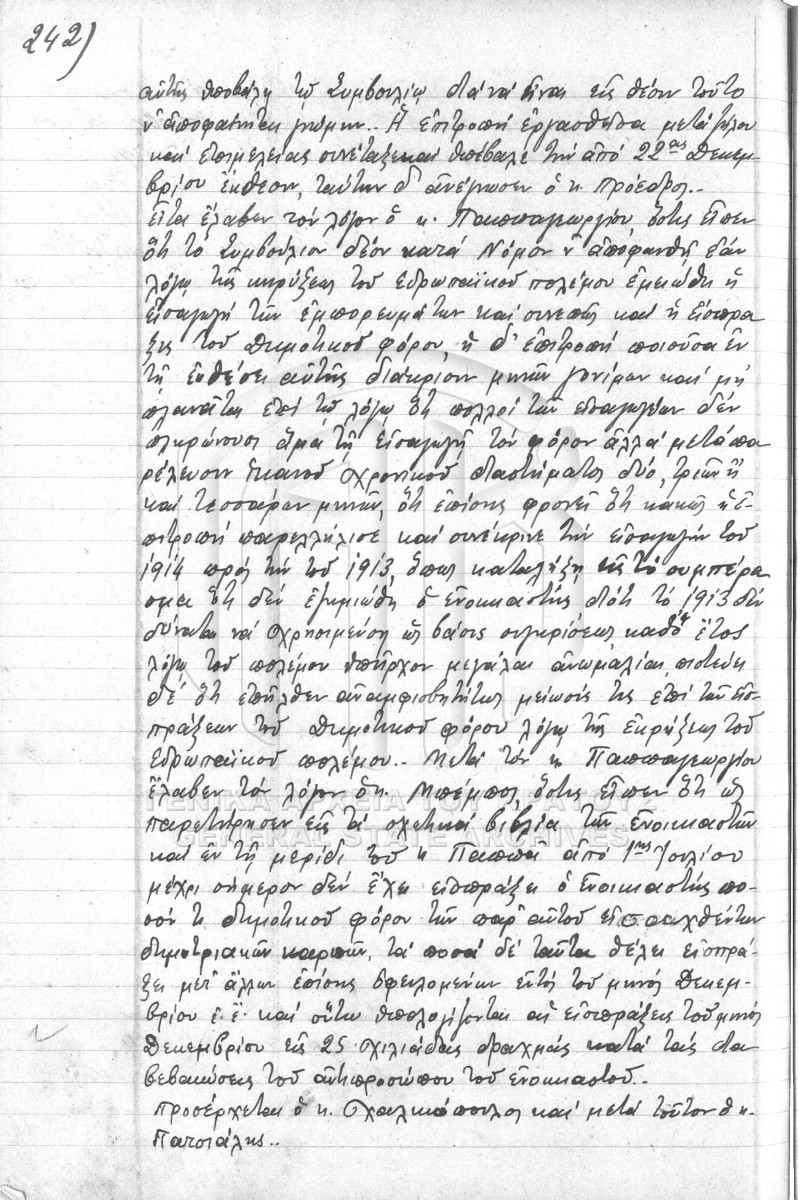 242)
αὐτῆς ὑποβάλῃ τῷ Συμβουλίῳ διά νά εἶναι εἰς θέσιν τοῦτο
ν' ἀποφανθῇ γνώμην.. Ἡ ἐπιτροπή ἐργασθεῖσα μετά ζήλου
καί ἐπιμελείας συνέταξε καί ὑπέβαλε τήν ἀπό 22ας Δεκεμ-
βρίου ἔκθεσιν, ταύτην δ' ἀνέγνωσεν ὁ κ. Πρόεδρος.-
Εἶτα ἔλαβεν τόν λόγον ὁ κ. Παππαγεωργίου, ὅστις εἶπεν
ὅτι τό Συμβούλιον δέον κατά Νόμον ν' ἀποφανθῇ ἐάν
λόγῳ τῆς κηρύξεως τοῦ Εὐρωπαϊκοῦ πολέμου ἐμειώθη ἡ
εἰσαγωγή τῶν ἐμπορευμάτων καί συνεπῶς καί ἡ εἴσπρα
ξις τοῦ δημοτικοῦ φόρου, ἡ δ' ἐπιτροπή ποιοῦσα ἐν
τῇ ἐκθέσει αὐτῆς διάκρισιν μηνῶν γονίμων καί μή
πλανᾶται ἐπί τῷ λόγῳ ὅτι πολλοί τῶν εἰσαγωγέων δέν
πληρώνουσι ἅμα τῇ εἰσαγωγῇ τόν φόρον ἀλλά μετά πα
ρέλευσιν ἱκανοῦ χρονικοῦ διαστήματος δύο, τριῶν ἤ
καί τεσσάρων μηνῶν, ὅτι ἐπίσης φρονεῖ ὅτι κακῶς ἡ ἐ-
πιτροπή παρελλήλισε καί συνέκρινε τήν εἰσαγωγήν τοῦ
1914 πρός τήν τοῦ 1913, ὅπως καταλήξῃ εἰς τό συμπέρα
σμα ὅτι δέν ἐζημιώθη ὁ ἐνοικιαστής, διότι τό 1913 δέν
δύναται νά χρησιμεύσῃ ὡς βάσις συγκρίσεως, καθ' ὅ ἔτος
λόγῳ τοῦ πολέμου ὑπῆρχον μεγάλαι ἀνωμαλίαι, πιστεύει
δέ ὅτι ἐπῆλθεν ἀναμφισβητήτως μείωσίς τις ἐπί τῶν εἰσ-
πράξεων τοῦ δημοτικοῦ φόρου λόγῳ τῆς ἐκρήξεως τοῦ
Εὐρωπαϊκοῦ πολέμου.- Μετά τόν κ. Παππαγεωργίου
ἔλαβεν τόν λόγον ὁ κ. Μπέμπος, ὅστις εἶπεν ὅτι ὡς
παρετήρησεν εἰς τά σχετικά βιβλία τῶν ἐνοικιαστῶν
καί ἐν τῇ μερίδι τοῦ κ. Παππᾶ ἀπό 1ης Ἰουλίου
μέχρι σήμερον δέν ἔχει εἰσπράξει ὁ ἐνοικιαστής πο-
σόν τι δημοτικοῦ φόρου τῶν παρ' αὐτοῦ εἰσαχθέντων
δημητριακῶν καρπῶν, τά ποσά δέ ταῦτα θέλει εἰσπρά-
ξει μετ' ἄλλων ἐπίσης ὀφειλομένων ἐντός τοῦ μηνός Δεκεμ-
βρίου ἐ. ἔ. καί οὕτω ὑπολογίζονται αἱ εἰσπράξεις τοῦ μηνός
Δεκεμβρίου εἰς 25 χιλιάδας δραχμάς κατά τάς δια
βεβαιώσεις τοῦ ἀντιπροσώπου τοῦ ἐνοικιαστοῦ.-
Προσέρχεται ὁ κ. Χαλκιόπουλος καί μετά τοῦτον ὁ κ.
Πατσιάλης..
ΓΕΝΙΚΑ ΑΡΧΕΙΑ ΤΟΥ ΚΡΑΤΟΥΣ
GENERAL STATE ARCHIVES